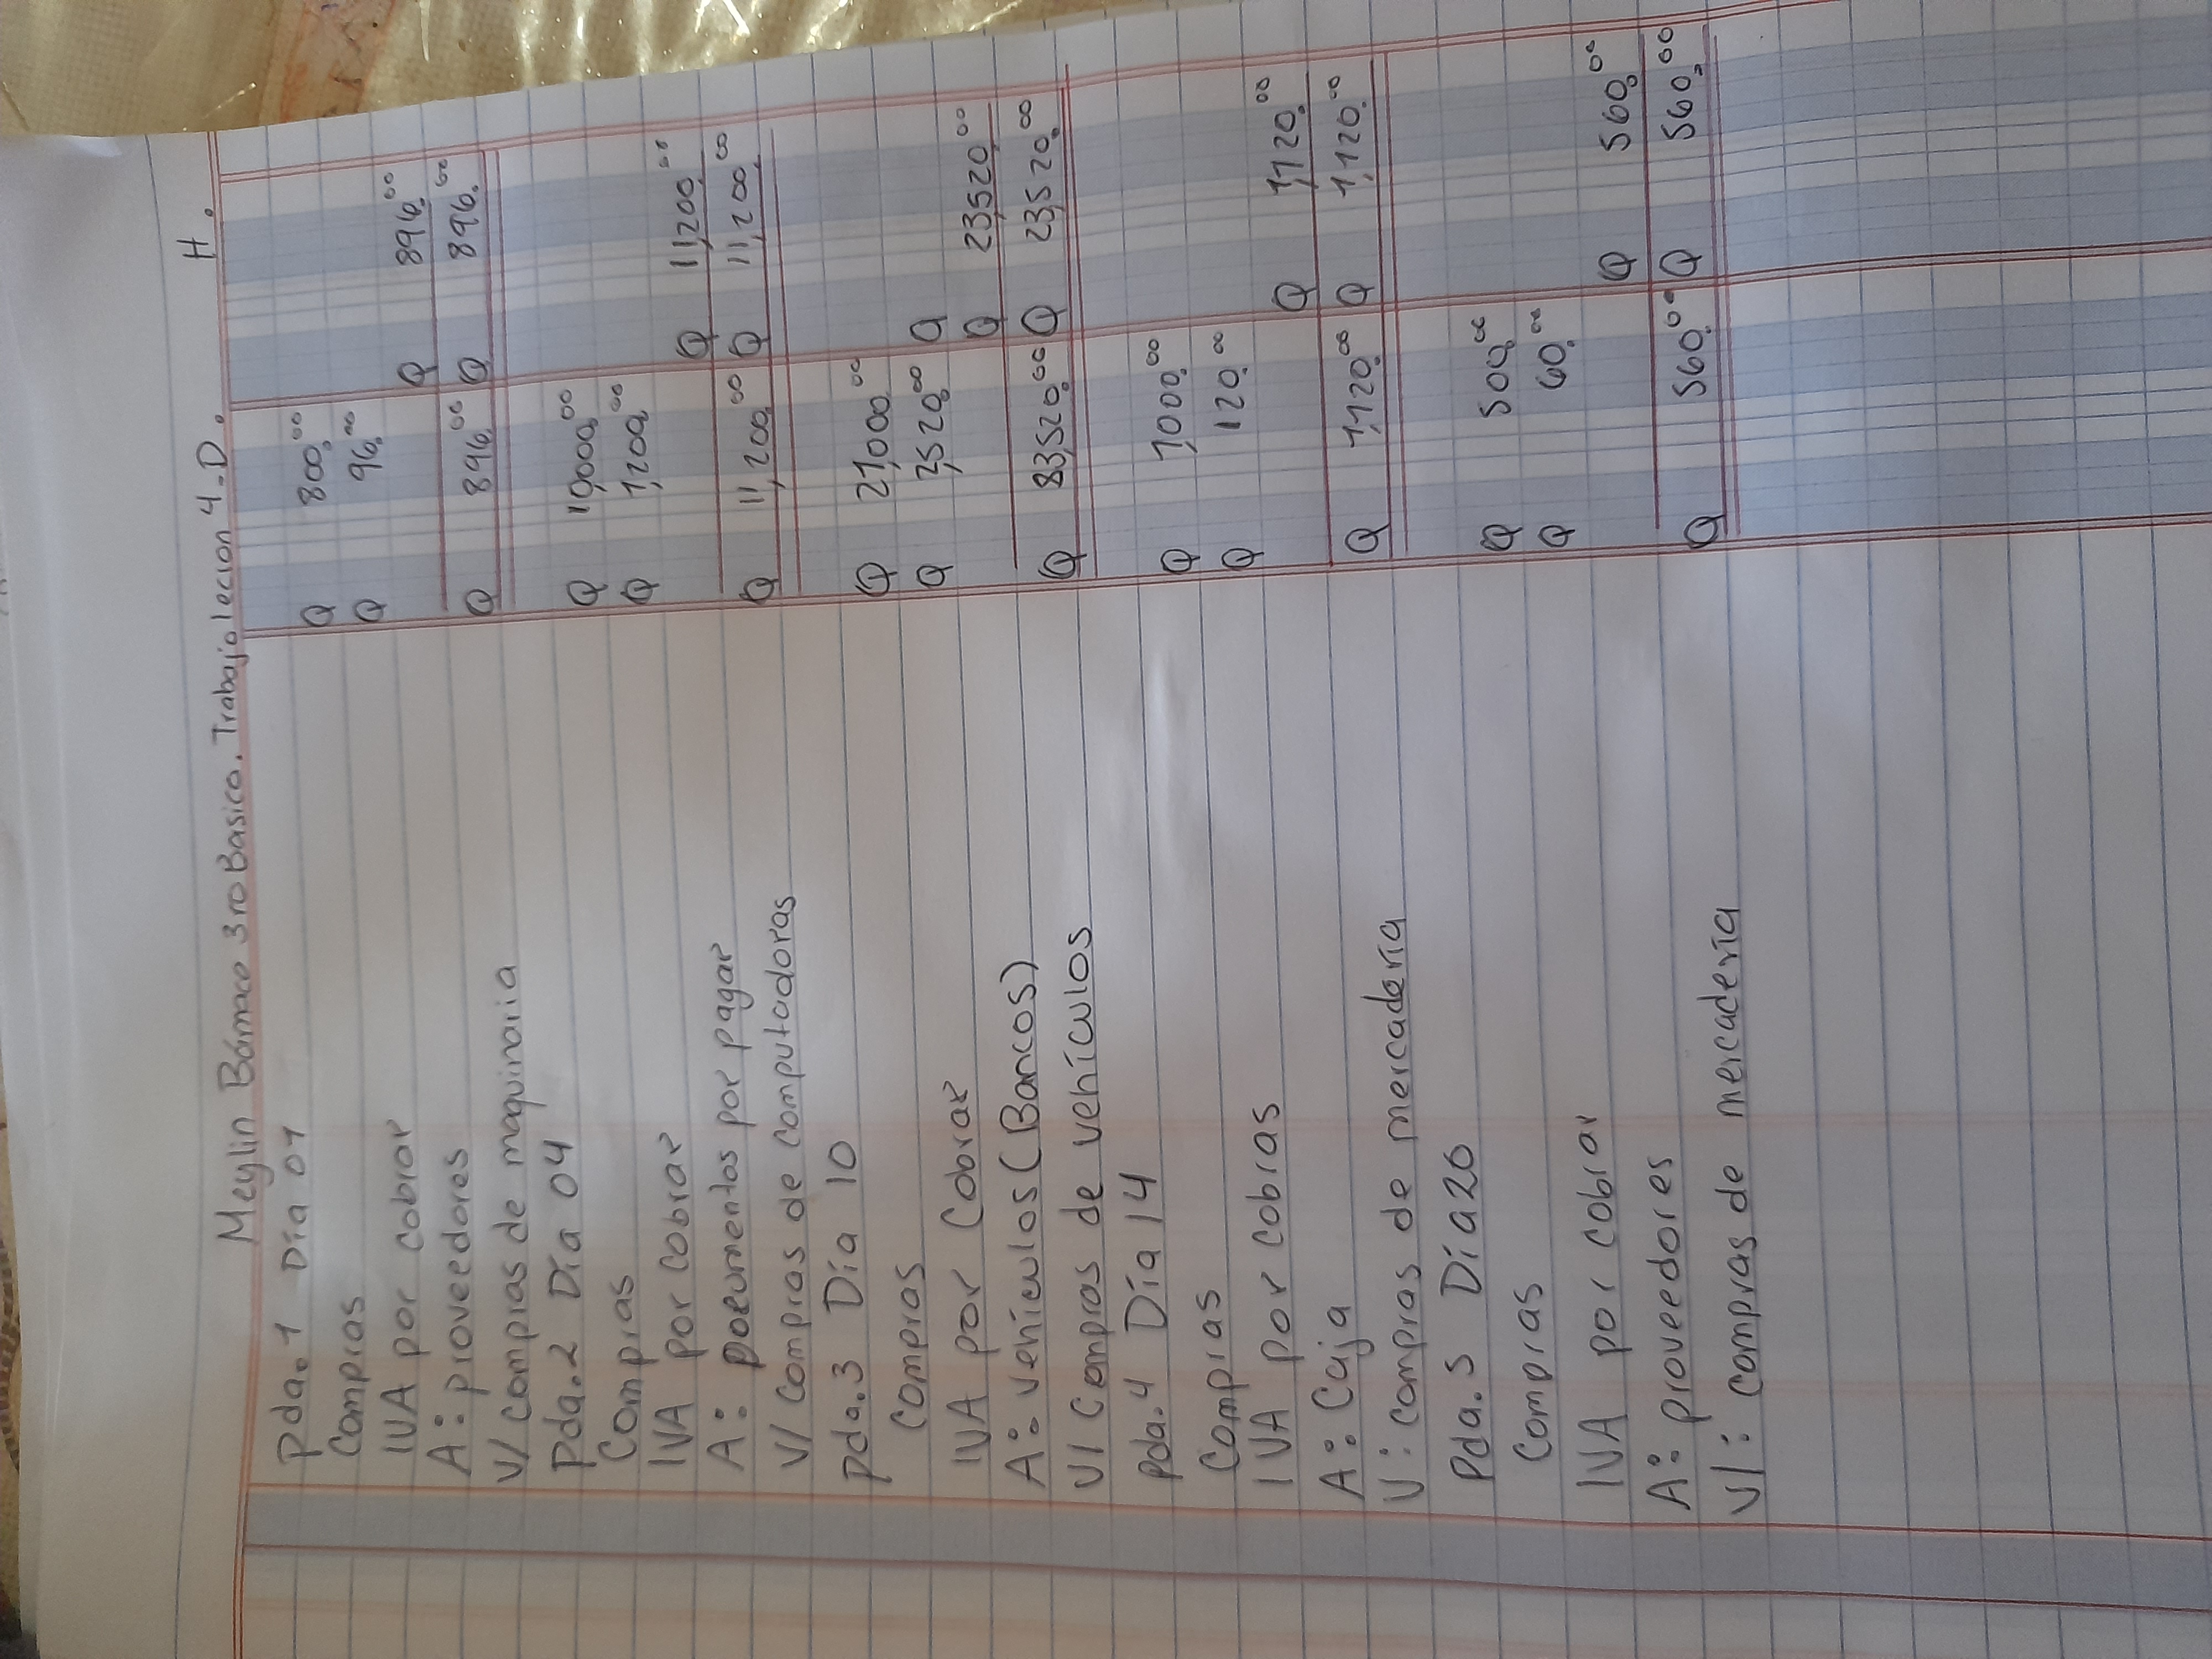 Meylin Bámaca 3ro Basico. Trabajo lecion 4. D. H.
Pda. 1 Día 01
Compras Q 800.00
IVA por cobrar Q 96.00
A: proveedores Q 896.00
V/ compras de maquinaria Q 896.00 Q 896.00
Pda. 2 Día 04
Compras Q 10,000.00
IVA por cobrar Q 1,200.00
A: por pagar Q 11,200.00
V/ compras de computadoras Q 11,200.00 Q 11,200.00
Pda. 3 Día 10
Compras Q 21,000.00
IVA por Cobrar Q 2,520.00 Q
A: vehículos (Bancos) Q 23,520.00
V/ Compras de vehículos Q 83,520.00 Q 23,520.00
Pda. 4 Día 14
Compras Q 1,000.00
IVA por cobras Q 120.00
A: Caja Q 1,120.00
V: compras de mercadería Q 1,120.00 Q 1,120.00
Pda. 5 Día 20
Compras Q 500.00
IVA por cobrar Q 60.00
A: proveedores Q 560.00
V/: compras de mercadería Q 560.00 Q 560.00